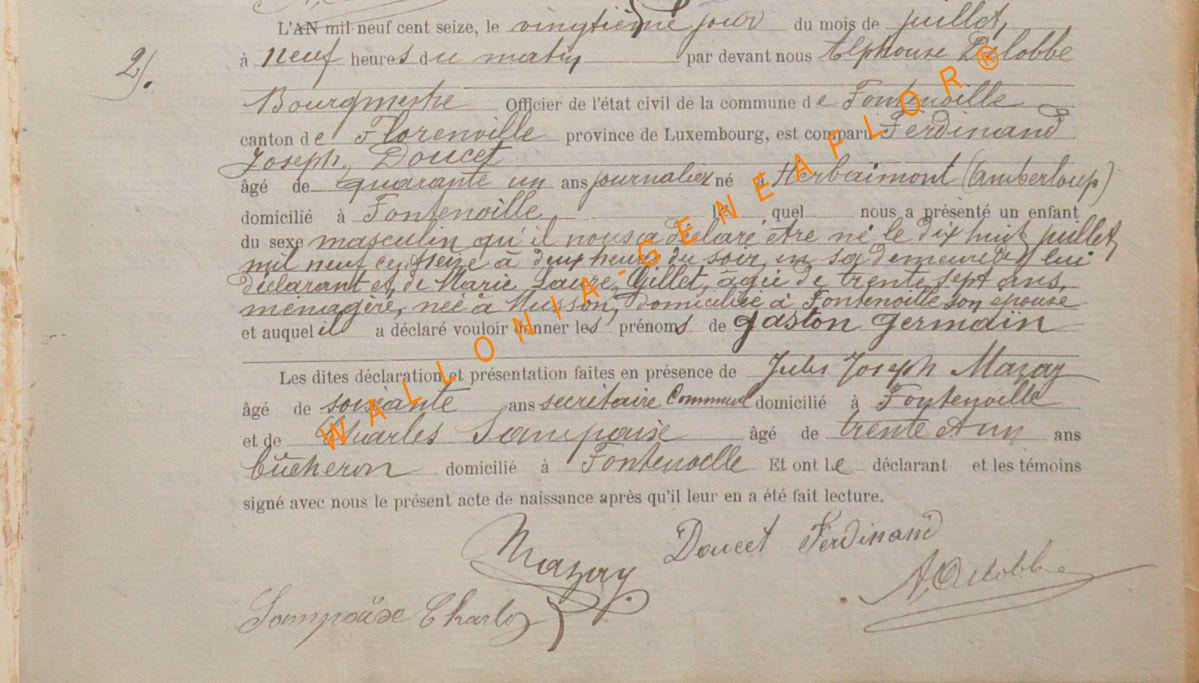 L'AN mil neuf cent seize, le vingtième jour du mois de juillet,
2/.
à neuf heures du matin par devant nous Alphonse Delobbe
Bourgmestre Officier de l'état civil de la commune de Fontenoille
canton de Florenville province de Luxembourg, est comparu Ferdinand
Joseph Doucet
âgé de quarante un ans journalier né à Herbaimont (Amberloup)
domicilié à Fontenoille lequel nous a présenté un enfant
du sexe masculin qu'il nous a déclaré être né le dix huit juillet
mil neuf cent seize à deux heures du soir en sa demeure de lui
déclarant et de Marie Laure Gillet, âgée de trente sept ans,
ménagère, née à Musson, domiciliée à Fontenoille son épouse
et auquel il a déclaré vouloir donner les prénoms de Gaston Germain
Les dites déclaration et présentation faites en présence de Jules Joseph Mazay
âgé de soixante ans secrétaire Communal domicilié à Fontenoille
et de Charles Sampoixe âgé de trente et un ans
bûcheron domicilié à Fontenoille Et ont le déclarant et les témoins
signé avec nous le présent acte de naissance après qu'il leur en a été fait lecture.
Mazay Doucet Ferdinand
A. Delobbe
Charles
WALLONIA-GENEAFLOR®